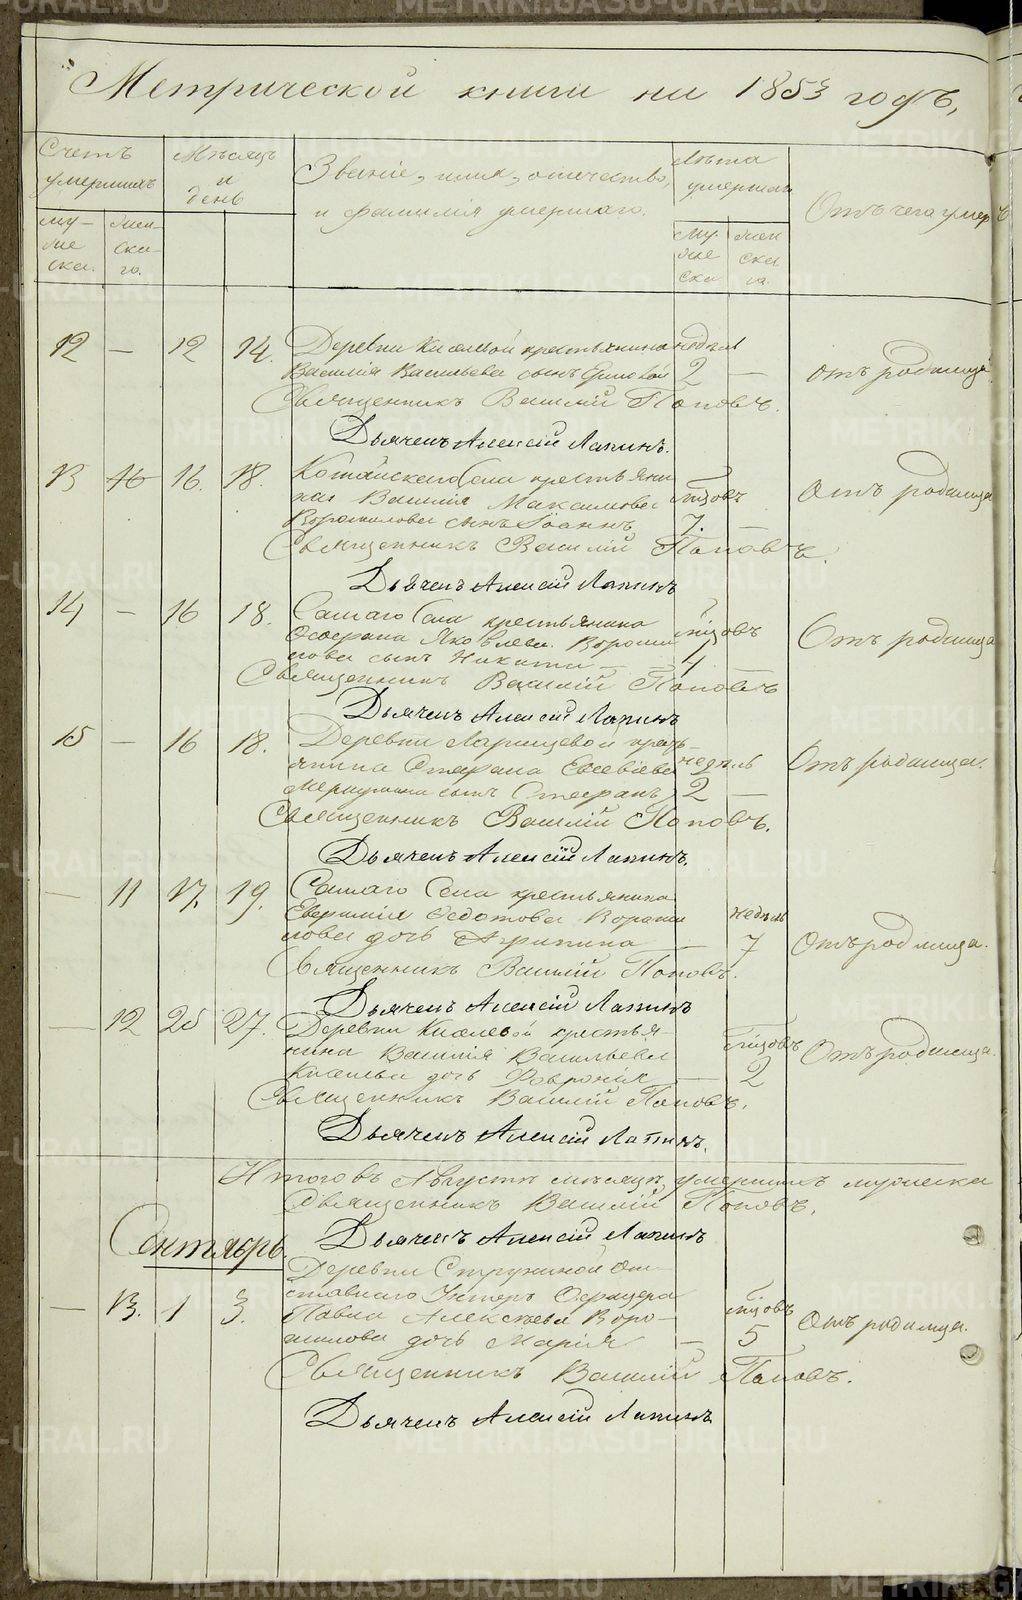 Метрической книги на 1853 годъ,
Счетъ умершихъ
Мѣсяцъ и день
Званіе, имя, отчество, и фамилія умершаго.
Лѣта умершаго
Отъ чего умеръ
муже ска.
жен ска го.
му же ска
жен ска га.
12 — 12 14. Деревни Киселевой крестьянина недѣль
Василія Васильева сынъ 2 — отъ родимца
Священникъ Василій Поповъ.
Дьячекъ Алексій Лапинъ.
13 16. 18. Села крестьяни
на Василія Максимова годовъ Отъ родимца
Ворошилова сынъ Іоаннъ 7. —
Священникъ Василій Поповъ.
Дьячекъ Алексій Лапинъ
14 — 16 18. Самаго Села крестьянина
Яковлева Вороши годовъ Отъ родимца
лова сынъ Никита — 4 —
Священникъ Василій Поповъ
Дьячекъ Алексій Лапинъ
15 — 16 18. Деревни Ларищевой кресть-
янина Стефана Евсевіева недѣль Отъ родимца.
сынъ Стефанъ 2 —
Священникъ Василій Поповъ.
Дьячекъ Алексій Лапинъ.
— 11 17. 19. Самаго Села крестьянина
Федотова Вороши недѣль
лова дочь Агрипина — 7 Отъ родимца.
Священникъ Василій Поповъ.
Дьячекъ Алексій Лапинъ
— 12 25 27. Деревни Киселевой крестья-
нина Василія Васильева годовъ Отъ родимца.
Киселева дочь Февронія — 2
Священникъ Василій Поповъ.
Дьячекъ Алексій Лапинъ.
Итого въ Августѣ мѣсяцѣ умершихъ мужеска
Священникъ Василій Поповъ.
Дьячекъ Алексій Лапинъ
Сентябрь.
Деревни От-
ставнаго Унтеръ Офицера
— 13. 1 3. Павла Алексѣева Воро- годовъ Отъ родимца.
шилова дочь Марія — 5
Священникъ Василій Поповъ.
Дьячекъ Алексій Лапинъ
METRIKI.GASO-URAL.RU